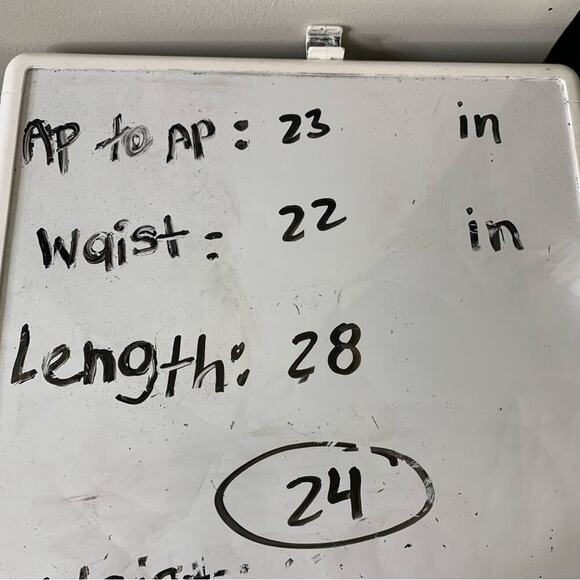 AP to AP: 23 in
Waist: 22 in
Length: 28
24